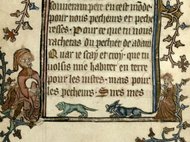 souuerain pere en ceste mode
pour nous pecheurs et peche
resses. Pour ce que tu nous
rachetas du pechie de adam
Quar ie scay et croy que tu
uolsis une habiter en terre
pour les iustes mais pour
les pecheurs. Sires mes